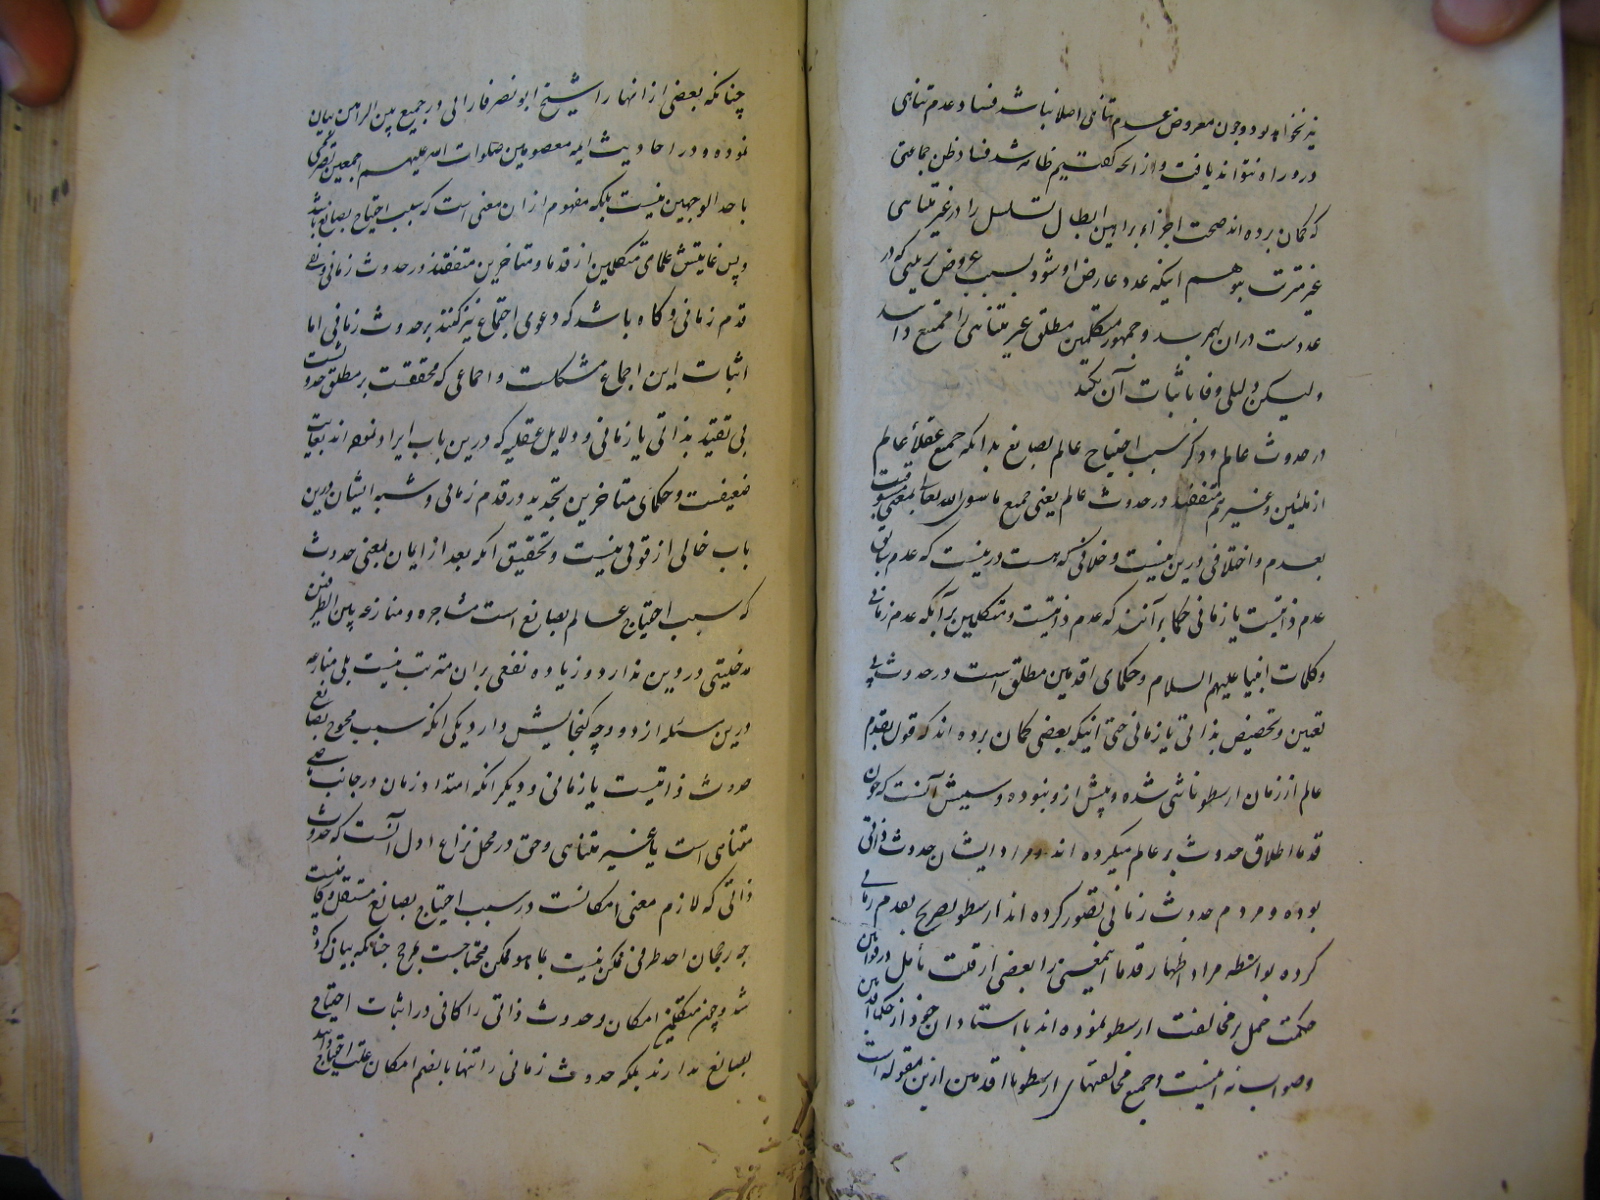 نیز نخواهد بود و چون معروض عدم تناهی اصلا نباشد فساد عدم تناهی
درو راه نتواند یافت و از انچه گفتیم ظاهر شد فساد ظن جماعتی
که گمان برده اند صحت اجراء براهین ابطال تسلسل را در غیر متناهی
غیر مترتب بتوهم اینکه عدد عارض او شود و بسبب عروض ترتیبی که در
عددست دران بهم رسد و جمهور متکلمین مطلق غیر متناهی را ممتنع دانند
و لیکن دلیلی وفا باثبات آن نکند
در حدوث عالم و ذکر سبب احتیاج عالم بصانع بدانکه جمیع عقلاء عالم
از ملیین و غیرهم متفقند در حدوث عالم یعنی جمیع ما سوی الله تعالی بمعنی مسبوقیت
بعدم و اختلافی درین نیست و خلافی که هست درینست که عدم سابق
عدم ذاتیست یا زمانی حکما بر آنند که عدم ذاتیست و متکلمین بر آنکه عدم زمانی
و کلمات انبیا علیهم السلام و حکمای اقدمین مطلق است در حدوث بی
تعیین و تخصیص بذاتی یا زمانی حتی اینکه بعضی گمان برده اند که قول بقدم
عالم از زمان ارسطو ناشی شده و پیش ازو نبوده و سببش آنست که چون
قدما اطلاق حدوث بر عالم میکرده اند و مراد ایشان حدوث ذاتی
بوده و مردم حدوث زمانی تصور کرده اند ارسطو تصریح بعدم زمانی
کرده بواسطه اظهار مراد قدما اینمعنی را بعضی از قلت تأمل در قوانین
حکمت حمل بر مخالفت ارسطو نموده اند با استادان خود از حکمای اقدمین
و صواب نه اینست و جمیع مخالفتهای ارسطو با اقدمین ازین مقوله است
چنانکه بعضی از انها را شیخ ابو نصر فارابی در جمع بین الرایین بیان
نموده و در احادیث ایمه معصومین صلوات الله علیهم اجمعین تصریحی
باحد الوجهین نیست بلکه مفهوم ازان معنی است که سبب احتیاج بصانع باشد
و بس غایتش علمای متکلمین از قدما و متاخرین متفقند در حدوث زمانی و نفی
قدم زمانی و گاه باشد که دعوی اجماع نیز کنند بر حدوث زمانی اما
اثبات این اجماع مشکلست و اجماعی که محققست بر مطلق حدوثست
بی تقیید بذاتی یا زمانی و دلایل عقلیه که درین باب ایراد نموده اند بغایت
ضعیفست و حکمای متاخرین بتجدید در قدم زمانی و شبه ایشان درین
باب خالی از قوتی نیست و تحقیق انکه بعد از ایمان بمعنی حدوث
که سبب احتیاج عالم بصانع است مشاجره و منازعه بین الطرفین
مدخلیتی در دین ندارد و زیاده نفعی بران مترتب نیست بلی منازعه
درین مسئله از دو وجه گنجایش دارد یکی انکه سبب محوج بصانع
حدوث ذاتیست یا زمانی و دیگر انکه امتداد زمان در جانب ماضی
متناهی است یا غیر متناهی و حق در محل نزاع اول آنست که حدوث
ذاتی که لازم معنی امکانست در سبب احتیاج بصانع مستقل و کافیست
چه رجحان احد طرفی ممکن نیست بما هو ممکن محتاجست بمرجح چنانکه بیان کرده
شد و چون متکلمین امکان و حدوث ذاتی را کافی در اثبات احتیاج
بصانع ندارند بلکه حدوث زمانی را تنها یا بضم امکان علت احتیاج دانند